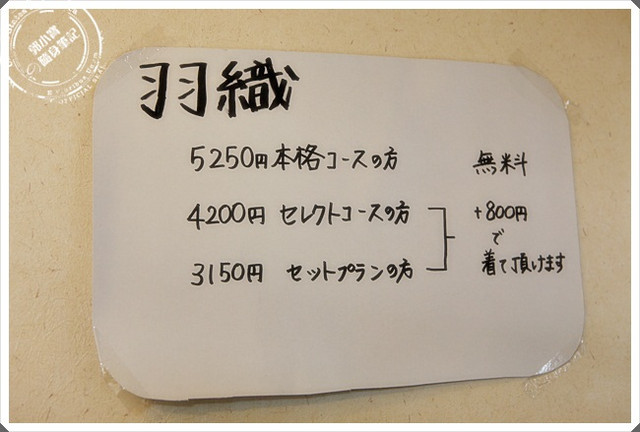 羽織
5250円 本格コースの方 無料
4200円 セレクトコースの方 +800円
で
3150円 セットプランの方 着て頂けます
郭小寶
隨身筆記